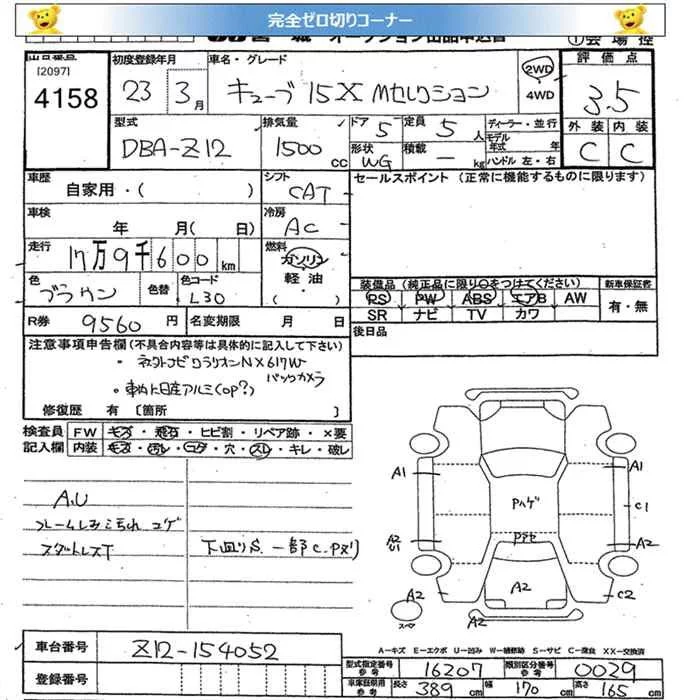 完全ゼロ切りコーナー
[2097]
4158
初度登録年月
23 3月
車名・グレード
キューブ 15X Mセレクション
2WD
・
4WD
評価点
3.5
型式
DBA-Z12
排気量
1500 cc
ドア 5
定員 5 人
ディーラー・並行
モデル
年式 年
形状 WG
積載 - kg
ハンドル 左・右
外装 内装
C C
車歴
自家用・( )
シフト
CAT
セールスポイント (正常に機能するものに限ります)
車検
年 月( 日)
冷房
AC
走行
17万9千600 km
燃料
ガソリン
軽油
( )
色
ブラウン
色替
色コード
L30
装備品 (純正品に限り○をつけてください)
PS PW ABS エアB AW
SR ナビ TV カワ
新車保証書
有・無
R券 9560 円
名変期限 月 日
後日品
注意事項申告欄 (不具合内容等は具体的に記入して下さい)
バックカメラ
修復歴 有 [箇所 ]
検査員
記入欄
FW キズ・飛石・ヒビ割・リペア跡・×要
内装 キズ・汚レ・コゲ・穴・スレ・キレ・破レ
A.U
スタットレスT
A1 A1
Pハゲ
C1
A2
U1
A2
A2
A2 C2
A2
スペア
A-キズ E-エクボ U-凹み W-補修跡 S-サビ C-腐食 XX-交換済
車台番号
Z12-154052
登録番号
型式指定番号
参考
16207
類別区分番号
参考
0029
長さ 389 cm
幅 170 cm
高さ 165 cm